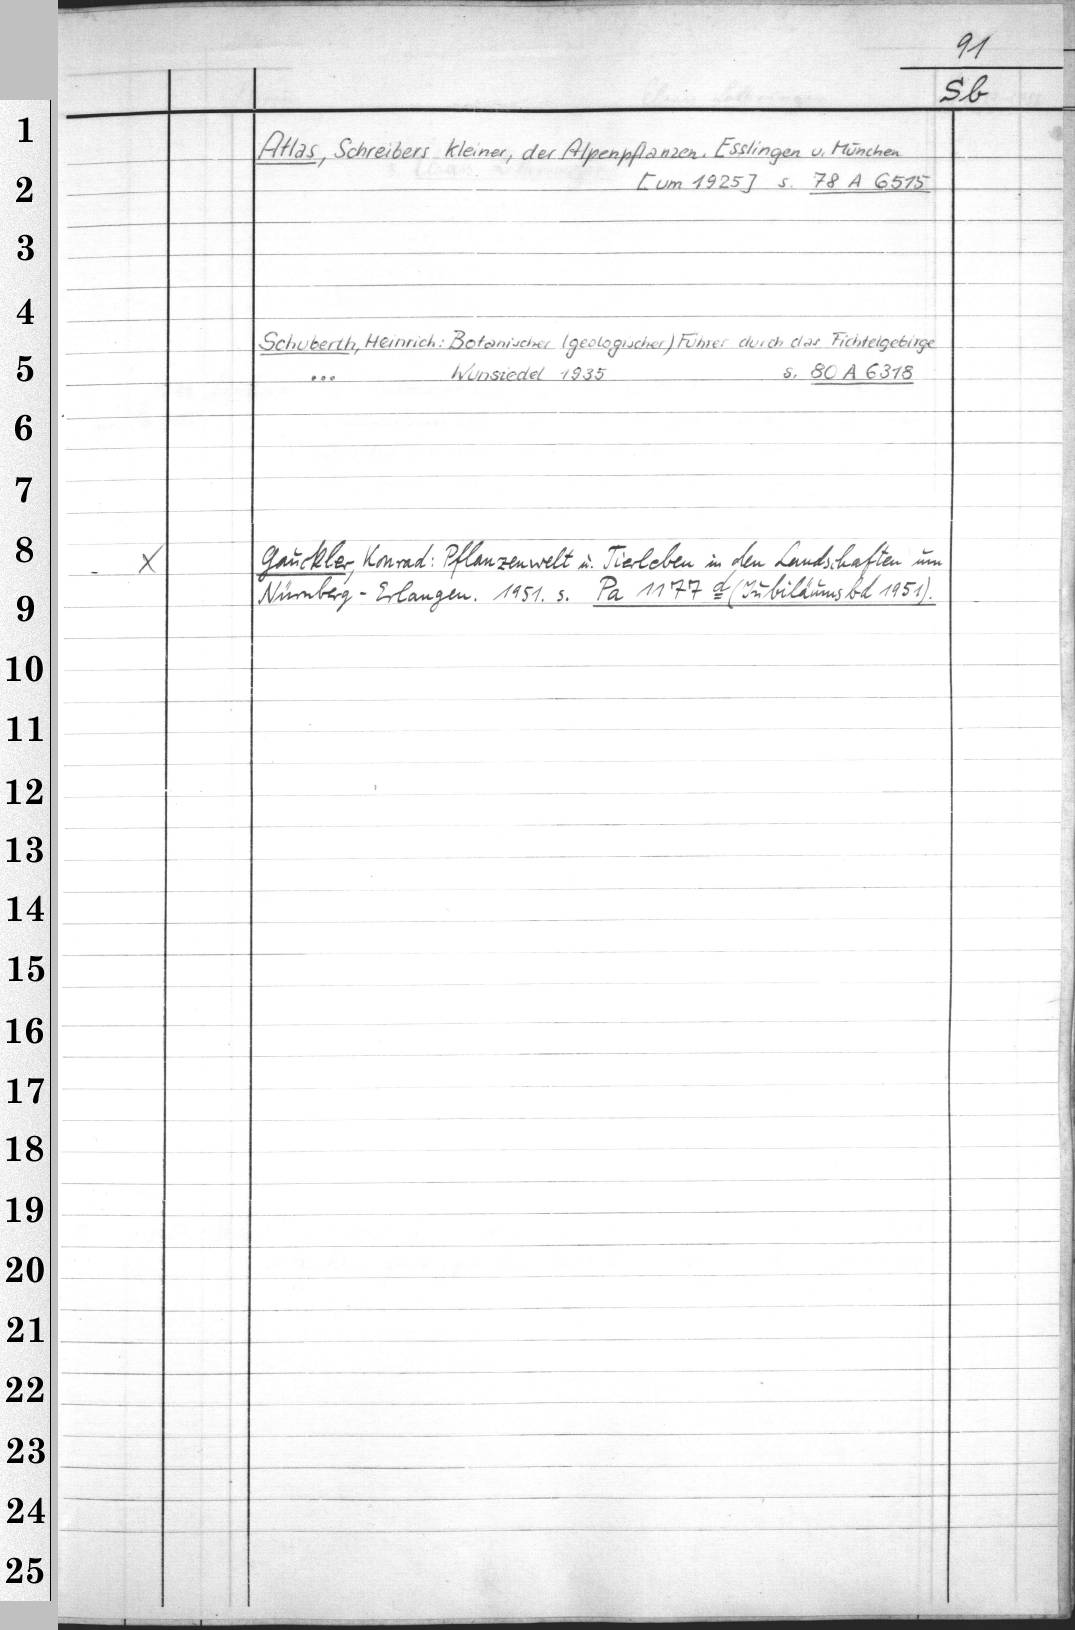 91
Sb
1
Atlas, Schreibers kleiner, der Alpenpflanzen. Esslingen u. München
2
[um 1925] s. 78 A 6515
3
4
Schuberth, Heinrich: Botanischer (geologischer) Führer durch das Fichtelgebirge
5
... Wunsiedel 1935 s. 80 A 6318
6
7
8
X Gauckler, Konrad: Pflanzenwelt u. Tierleben in den Landschaften um
9
Nürnberg - Erlangen. 1951. s. Pa 1177 d (Jubiläumsbd 1951).
10
11
12
13
14
15
16
17
18
19
20
21
22
23
24
25